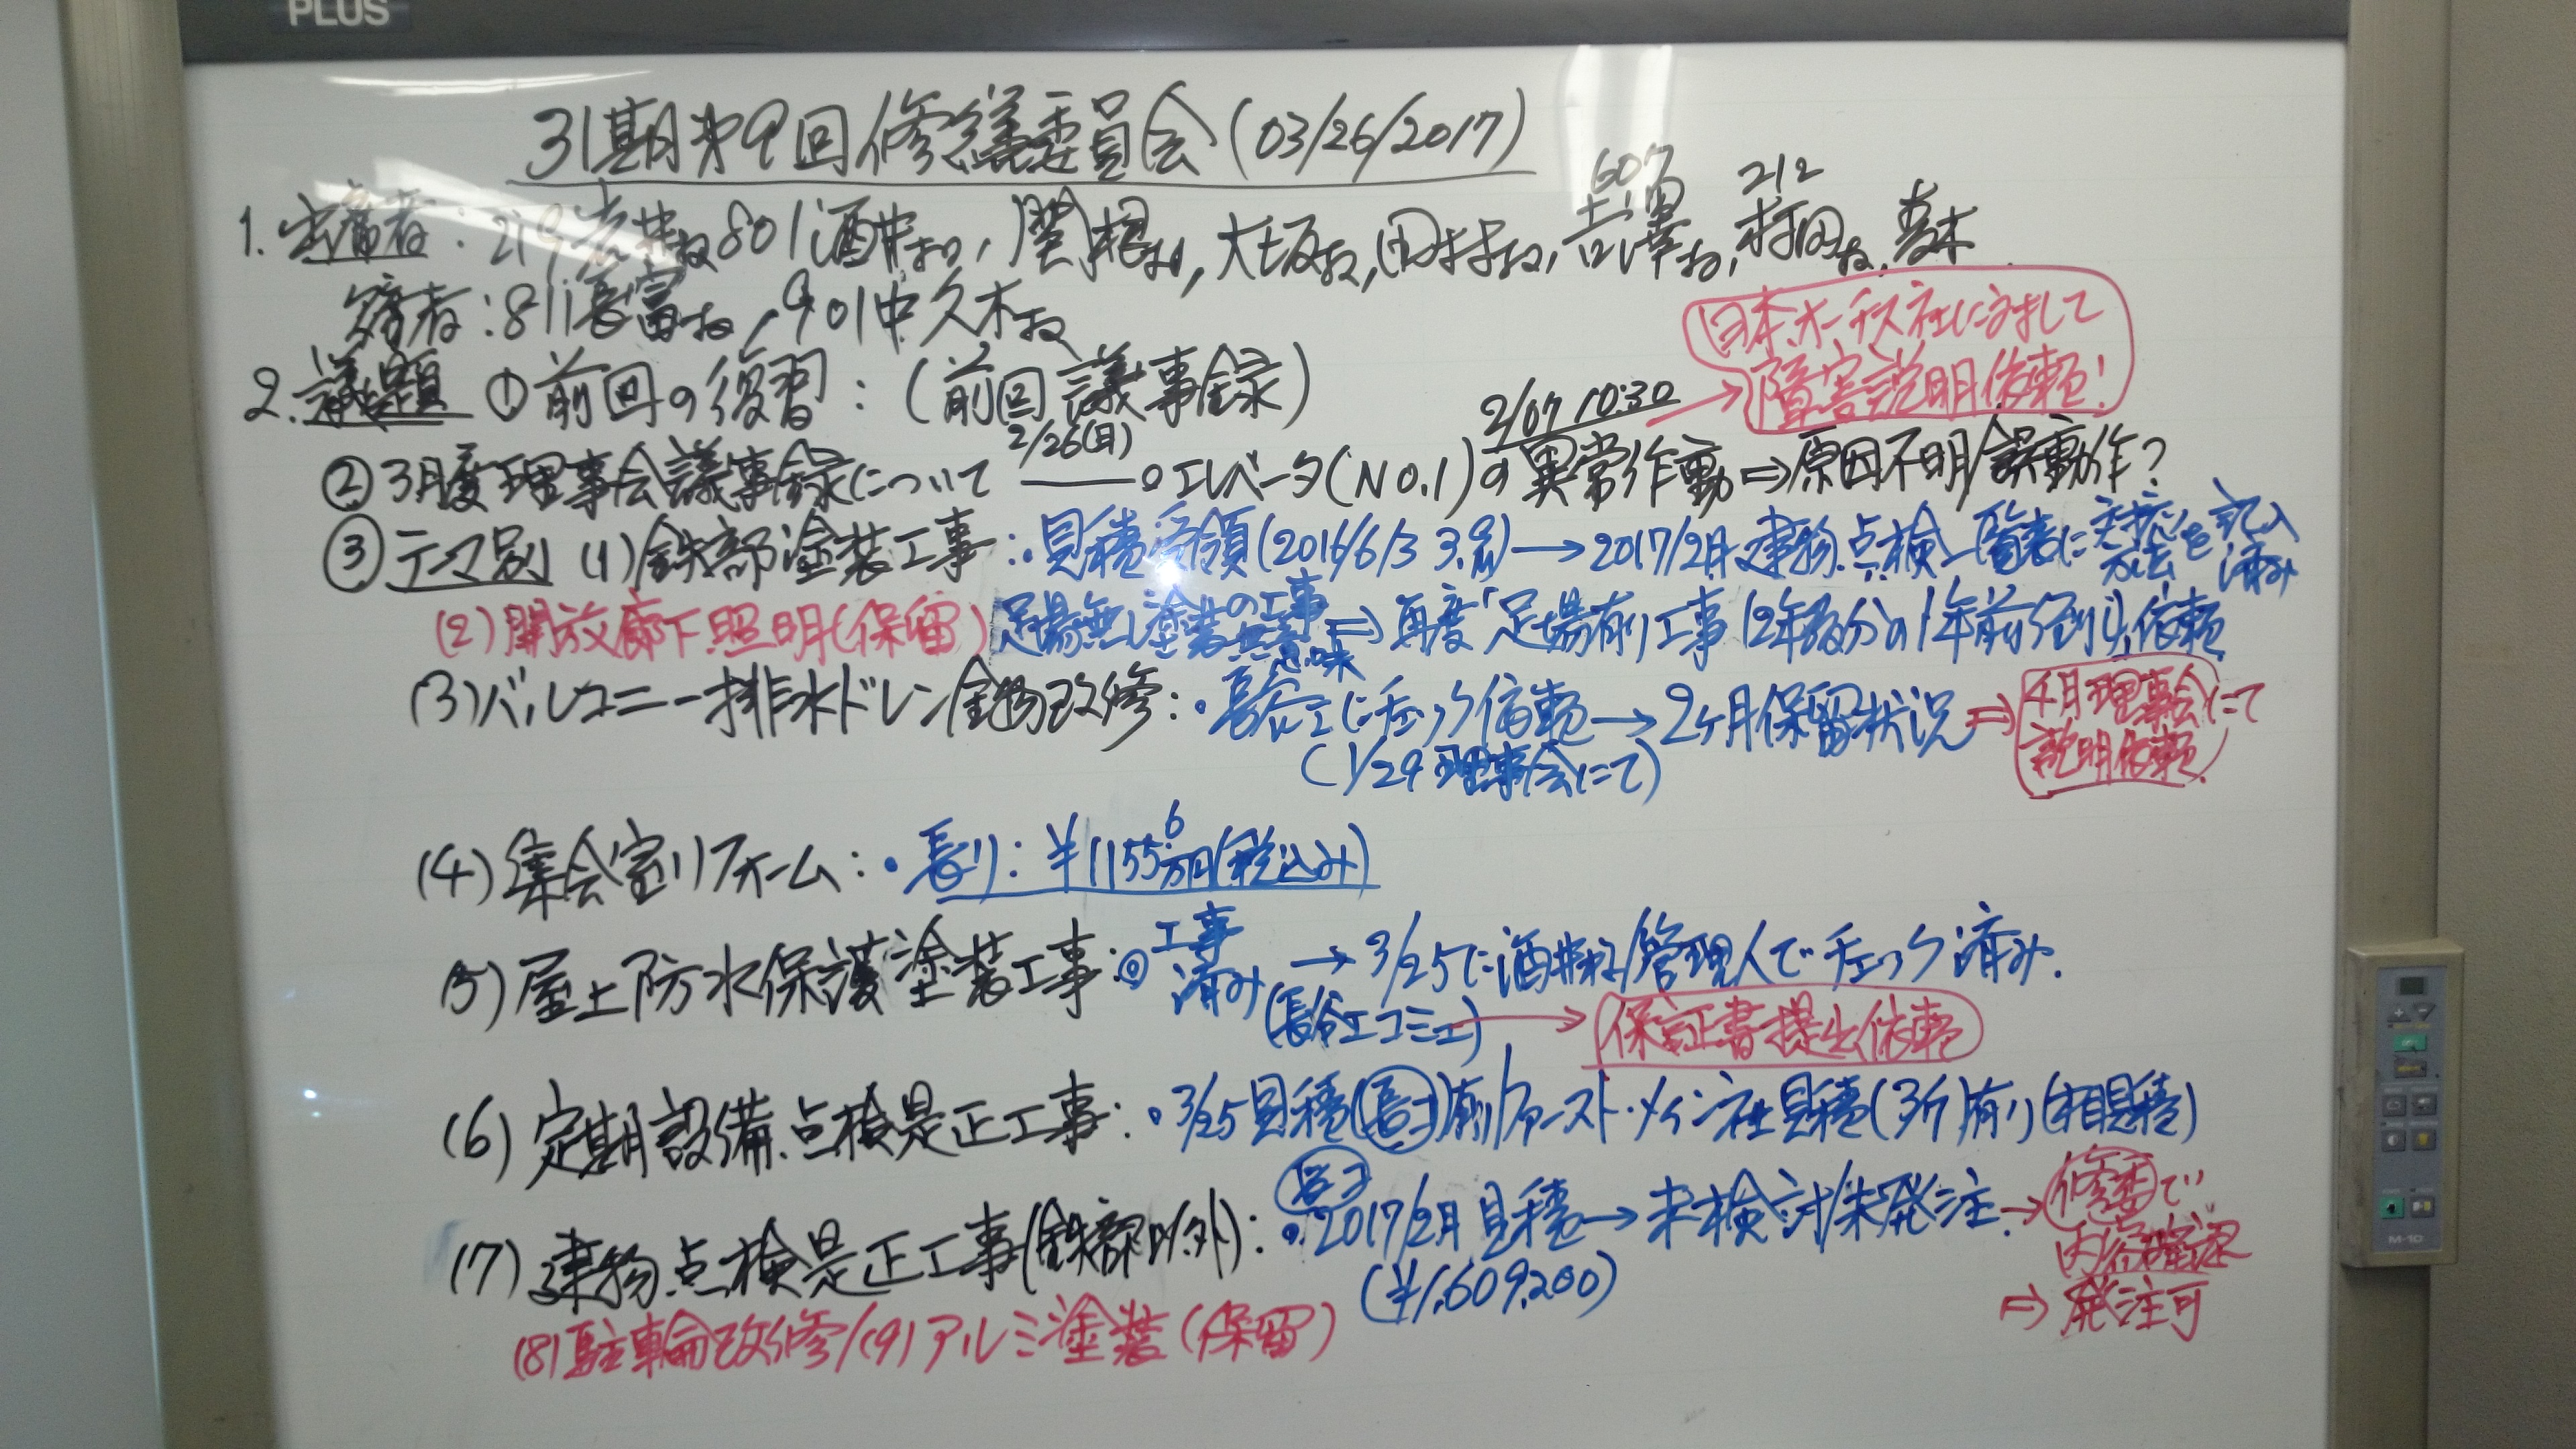 PLUS
31期第9回修繕委員会(03/26/2017)
607 212
1. 出席者:219岩井様 801酒井様, 関根様, 大坂様, 田村様, 吉澤様, 村田様,
席者:811長富様, 901中久木様
日本オーチス社に対して
障害説明依頼!
2. 議題 ①前回の復習:(前回議事録)
2/26(日) 2/07 10:30
②3月度理事会議事録について ——。エレベータ(NO.1)の異常作動⇨原因不明/誤動作?
③テーマ別 (1)鉄部塗装工事:・見積受領(2016/6/3 3.名)→2017/2月建物点検一覧表に対応方法を記入済み
(2)開放廊下照明(保留) 足場無し塗装の工事無意味⇨再度「足場有り工事12年級分の1年前倒し」依頼
(3)バルコニー排水ドレン金物改修:・長谷工にチェック依頼→2ヶ月保留状況⇨4月理事会にて
(1/29理事会にて) 説明依頼
(4)集会室リフォーム:・長リ:¥1155.6万円(税込み)
(5)屋上防水保護塗装工事:◎工事済み→3/25に酒井様/管理人でチェック済み.
(長谷工コミュ)→保証書提出依頼
(6)定期設備点検是正工事:・3/25見積(長コ)有/ファースト・メイン社見積(3月)有り(相見積)
長コ
(7)建物点検是正工事(鉄部以外):・2017/2月見積→未検討/未発注.→修委で
(¥1,609,200) 内容確認
⇨発注可
(8)駐輪改修/(9)アルミ塗装(保留)
M-10